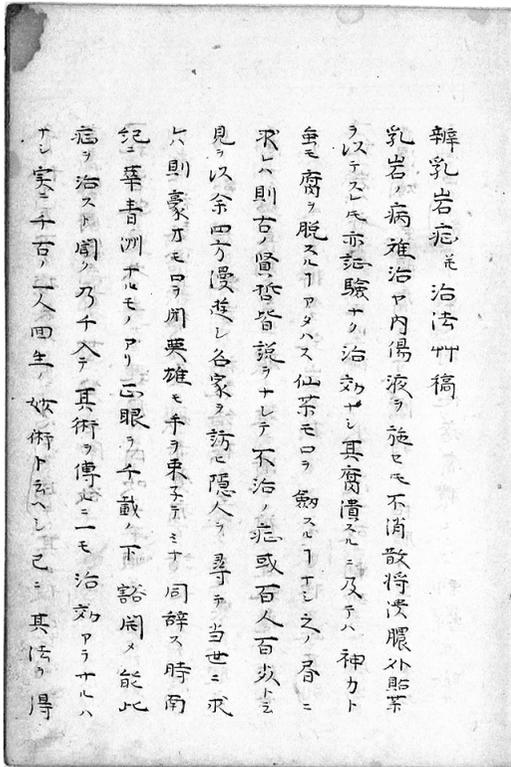 辨乳岩症并治法艸稿
乳岩ノ病難治ヤ内傷液ヲ施セモ不消散将潰膿外貼薬
ヲ以テスレモ亦証験ナク治効ナシ其腐潰スルニ及テハ神カト
虽モ腐ヲ脱スルヿアタハス仙薬モロヲ歛スルヿナシ之ノ昏ニ
求レハ則古ノ賢哲皆説ヲナシテ不治ノ症或百人百歿トミ
見ヲ以余四方漫遊シ各家ヲ訪ヒ隠人ヲ尋テ当世ニ求
レハ則豪才モロヲ閉英雄モ手ヲ束子テミナ同辞ス時南
紀ニ華青洲ナルモノアリ正眼ヲ千載ノ下豁開メ能此
症ヲ治スト聞ク乃チ入テ其術ヲ傳ルニ一モ治効アラサルハ
ナシ実ニ千古ノ一人回生ノ妙術ト云ヘシ已ニ其法ヲ得